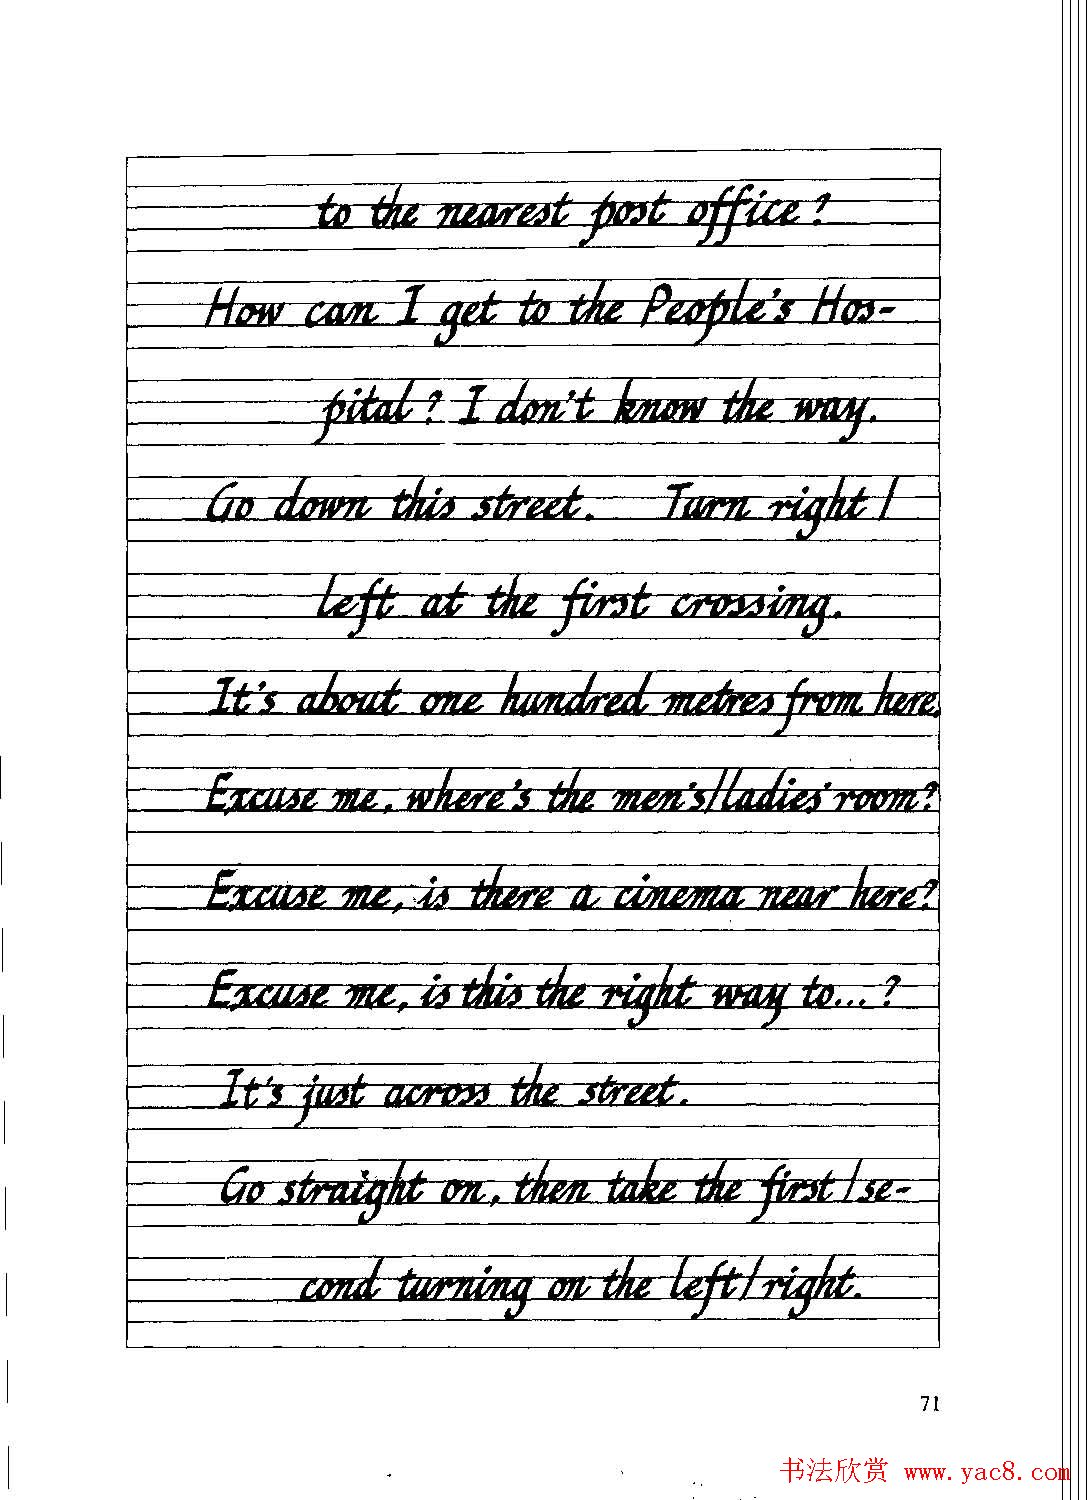 to the nearest post office?
How can I get to the People's Hos-
pital? I don't know the way.
Go down this street. Turn right/
left at the first crossing.
It's about one hundred metres from here.
Excuse me, where's the men's/ladies' room?
Excuse me, is there a cinema near here?
Excuse me, is this the right way to...?
It's just across the street.
Go straight on, then take the first/se-
cond turning on the left/right.
71
书法欣赏 www.yac8.com